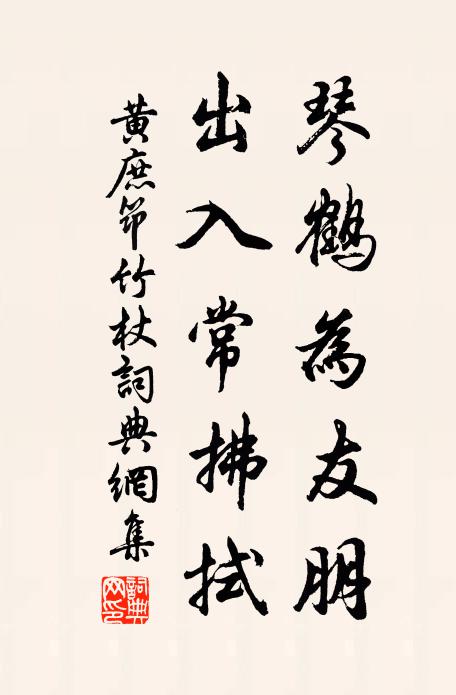 琴鶴為友朋
出入常拂拭
黃庶笻竹杖詞典網集
詞典網印